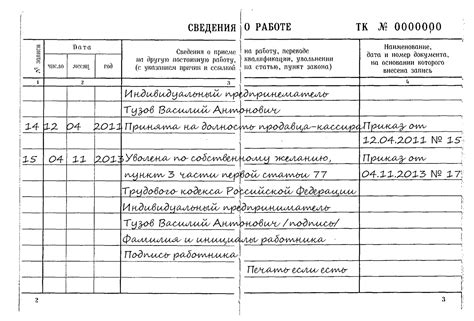 СВЕДЕНИЯ О РАБОТЕ ТК № 0000000
№ записи
Дата
число месяц год
Сведения о приеме на работу, переводе
на другую постоянную работу, квалификации, увольнении
(с указанием причин и ссылкой на статью, пункт закона)
Наименование,
дата и номер документа,
на основании которого
внесена запись
1 2 3 4
Индивидуальный предприниматель
Тузов Василий Антонович
14 12 04 2011 Принята на должность продавца-кассира Приказ от
12.04.2011 № 15
15 04 11 2013 Уволена по собственному желанию, Приказ от
пункт 3 части первой статьи 77 04.11.2013 № 17
Трудового кодекса Российской Федерации
Индивидуальный предприниматель
Тузов Василий Антонович /подпись/
Фамилия и инициалы работника
Подпись работника
Печать если есть
2 3